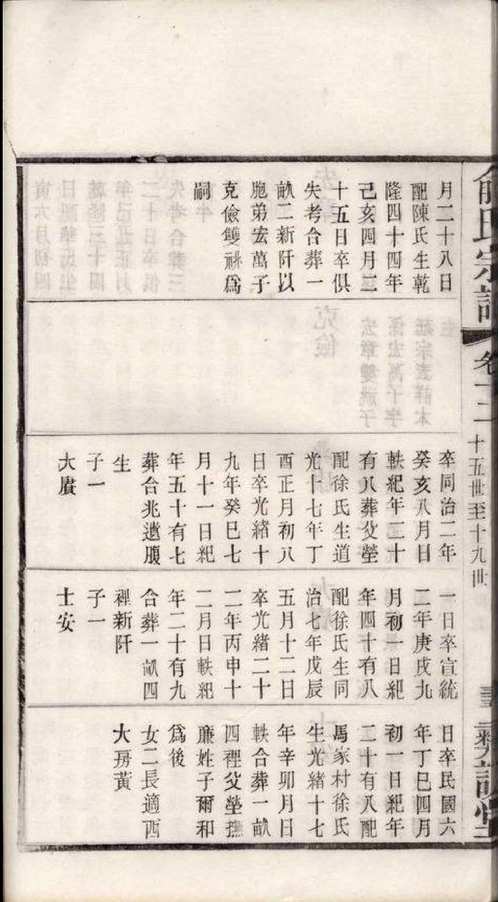 氏宗譜
卷十二
十五世至十九世
彝訓堂
月二十八日
配陳氏生乾
隆四十四年
己亥四月二
十五日卒俱
失考合葬一
畝二新阡以
胞弟宏萬子
克儉雙祧爲
嗣
卒同治二年
癸亥八月日
軼紀年二十
有八葬父塋
配徐氏生道
光十七年丁
酉正月初八
日卒光緒十
九年癸巳七
月十一日紀
年五十有七
葬合兆遺腹
生
子一
大賡
一日卒宣統
二年庚戌九
月初一日紀
年四十有八
配徐氏生同
治七年戊辰
五月十二日
卒光緒二十
二年丙申十
二月日軼紀
年二十有九
合葬一畝四
裡新阡
子一
士安
日卒民國六
年丁巳四月
初一日紀年
二十有八配
馬家村徐氏
生光緒十七
年辛卯月日
軼合葬一畝
四裡父塋撫
廉姓子爾和
爲後
女二長適西
大房黃